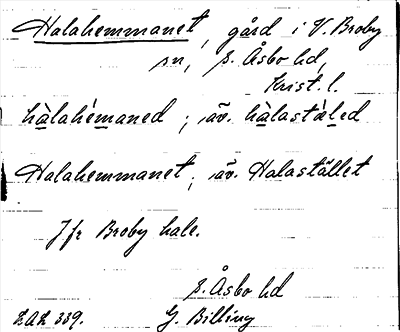 Halahemmanet, gård i V. Broby
sn, s. Åsbo hd,
Krist. l.
hàlahémaned ; äv. hàlastä́led
Halahemmanet; äv. Halastället
Jfr Broby hale.
s. Åsbo hd
LAL 339. G. Billing